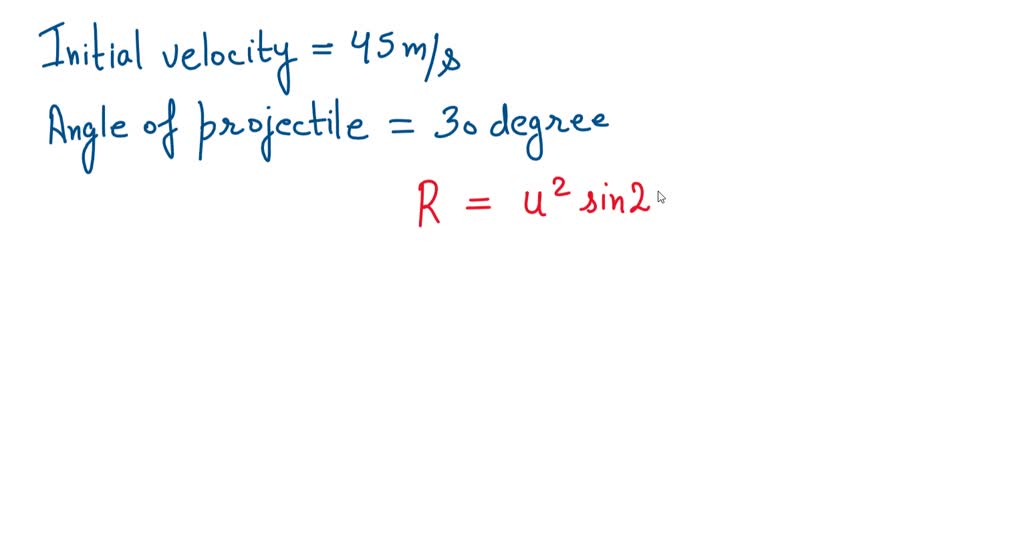 Initial velocity = 45 m/s
Angle of projectile = 30 degree
R = u² sin2